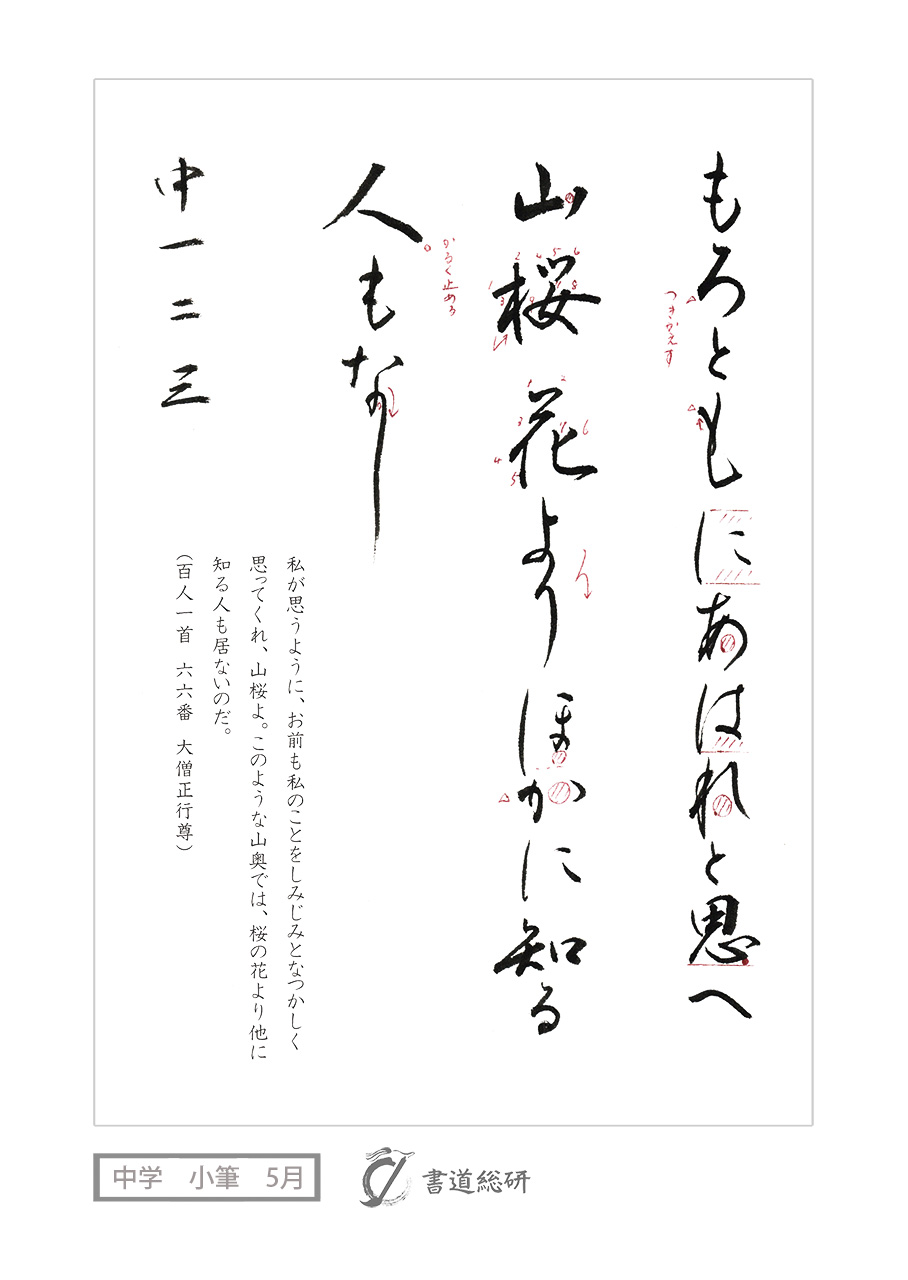 もろともにあはれと思へ
つきかえす
山桜花よりほかに知る
1 2 3 4 5 6 7 8
1 2 3 4 5 6
かるく止める
人もなし
中一二三
私が思うように、お前も私のことをしみじみとなつかしく
思ってくれ、山桜よ。このような山奥では、桜の花より他に
知る人も居ないのだ。
（百人一首 六六番 大僧正行尊）
中学 小筆 5月
書道総研